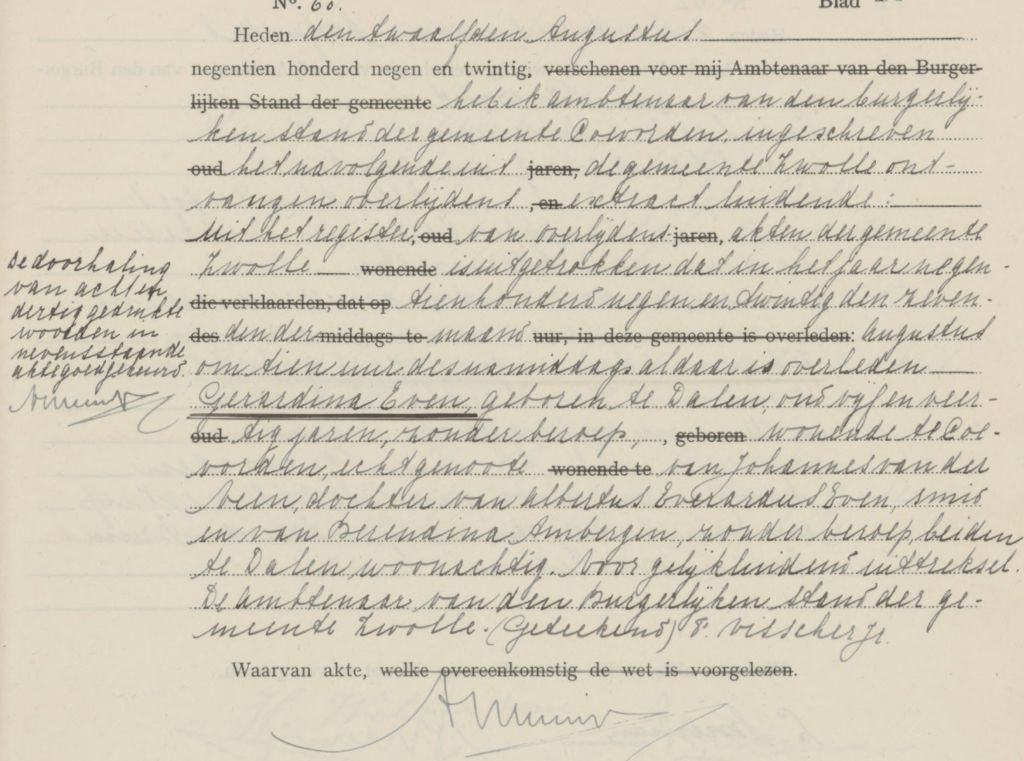 No. 60. Blad
Heden den twaalfden Augustus
negentien honderd negen en twintig, verschenen voor mij Ambtenaar van den Burger-
lijken Stand der gemeente heb ik ambtenaar van den burgerlij-
ken stand der gemeente Coevorden, ingeschreven
oud het navolgende uit jaren, de gemeente Zwolle ont-
vangen overlijdens , en extract luidende:
Uit het register, oud van overlijdens jaren, akten der gemeente
Zwolle wonende is uitgetrokken dat in het jaar negen-
die verklaarden, dat op tienhonderd negen en twintig den zeven-
des den der middags te maand uur, in deze gemeente is overleden: Augustus
om tien uur des namiddags aldaar is overleden
Gerardina Even, geboren te Dalen, oud vijf en veer-
oud tig jaren, zonder beroep, , geboren wonende te Coe-
vorden, echtgenoote wonende te van Johannes van der
Veen, dochter van Albertus Everardus Even, smid
en van Berendina Ambergen, zonder beroep, beiden
te Dalen woonachtig. Voor gelijkluidend uittreksel.
De Ambtenaar van den Burgerlijken Stand der ge-
meente Zwolle. (Geteekend) P. Visscher Jr.
Waarvan akte, welke overeenkomstig de wet is voorgelezen.
De doorhaling
van acht en
dertig gedrukte
woorden in
nevenstaande
akte goedgekeurd.